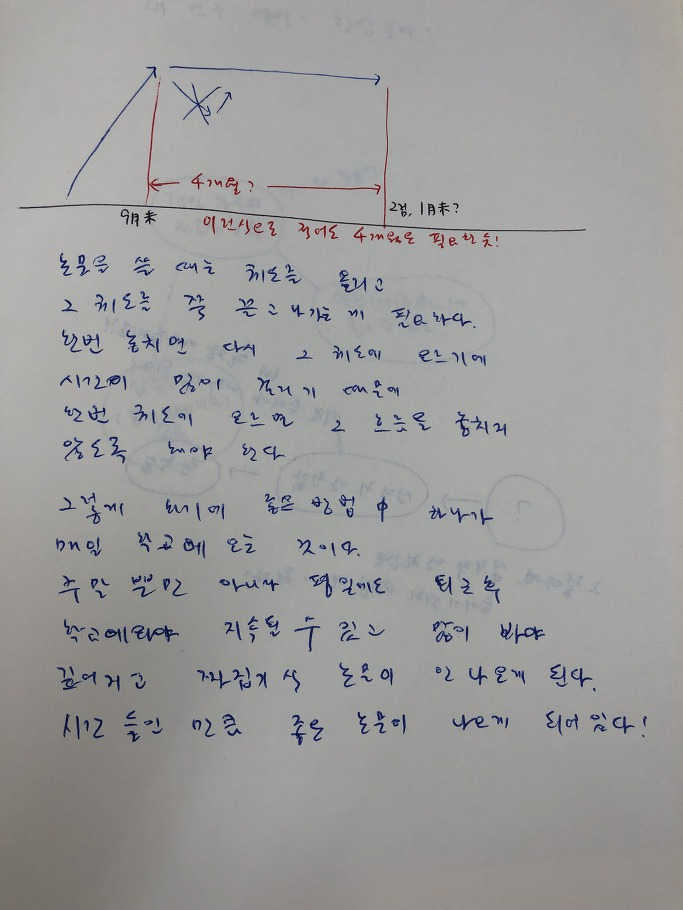 4개월?
9月末
그럼, 1月末?
이런식으로 적어도 4개월은 필요할 듯!
논문을 쓸 때는 궤도를 올리고
그 궤도를 쭉 끌고 나가는 게 필요하다.
한번 놓치면 다시 그 궤도에 오르기에
시간이 많이 걸리기 때문에
한번 궤도에 오르면 그 흐름을 놓치지
않도록 해야 한다
그렇게 되기에 좋은 방법 中 하나가
매일 학교에 오는 것이다.
주말 뿐만 아니라 평일에도 퇴근 후
학교에 와야 지속될 수 있고 많이 봐야
깊어지고 짜집기식 논문이 안 나오게 된다.
시간 들인 만큼 좋은 논문이 나오게 되어있다!